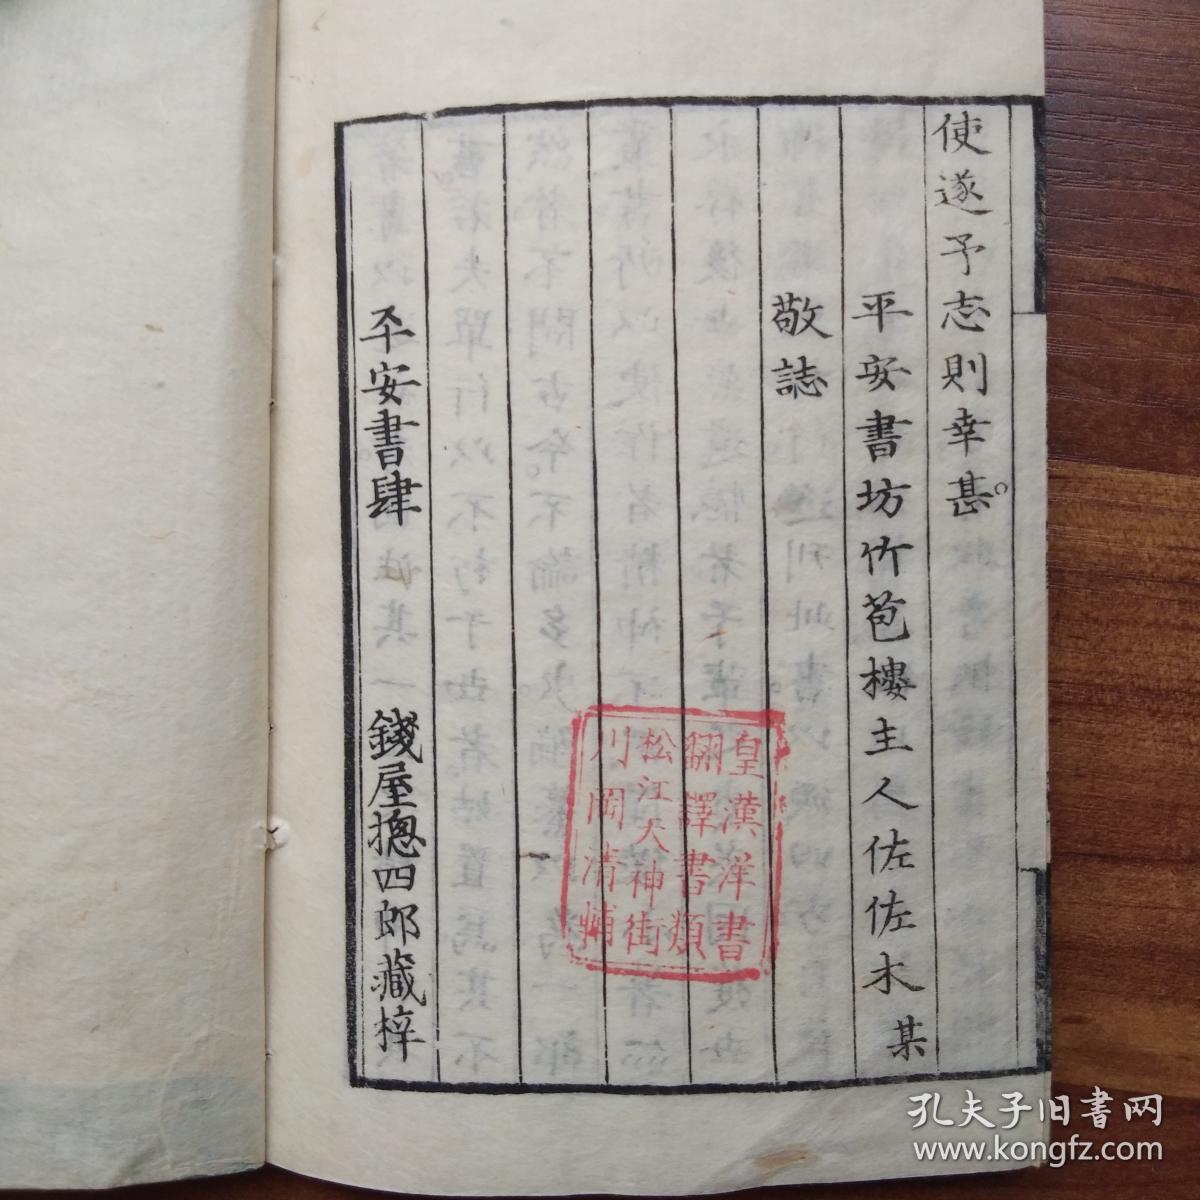 使遂予志則幸甚。
平安書坊竹苞樓主人佐佐木某
敬誌
平安書肆 錢屋摠四郎藏梓
皇漢洋書
翻譯書類
松江天神街
川岡清輔
孔夫子旧书网
www.kongfz.com